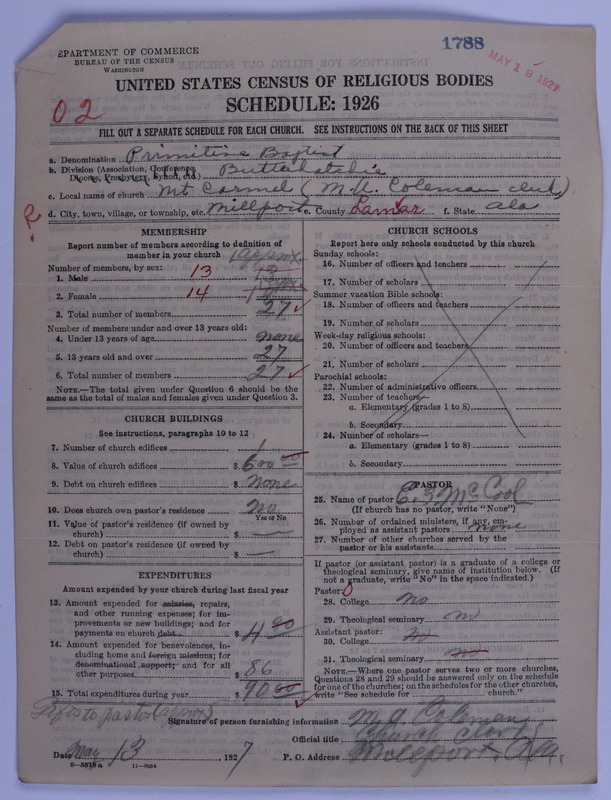 DEPARTMENT OF COMMERCE
BUREAU OF THE CENSUS
WASHINGTON
1788
MAY 19 1927
UNITED STATES CENSUS OF RELIGIOUS BODIES
SCHEDULE: 1926
02
FILL OUT A SEPARATE SCHEDULE FOR EACH CHURCH. SEE INSTRUCTIONS ON THE BACK OF THIS SHEET
a. Denomination Primitive Baptist
b. Division (Association, Conference, Diocese, Presbytery, Synod, etc.) Buttahatchie
c. Local name of church Mt Carmel (M. A. Coleman clerk)
R
d. City, town, village, or township, etc. Millport e. County Lamar f. State Ala
MEMBERSHIP
Report number of members according to definition of
member in your church (approx.
Number of members, by sex:
1. Male 13 13
2. Female 14
3. Total number of members 27
Number of members under and over 13 years old:
4. Under 13 years of age none
5. 13 years old and over 27
6. Total number of members 27
NOTE.—The total given under Question 6 should be the
same as the total of males and females given under Question 3.
CHURCH BUILDINGS
See instructions, paragraphs 10 to 12
7. Number of church edifices 1
8. Value of church edifices $ 600 00
9. Debt on church edifices $ none
10. Does church own pastor's residence no
Yes or No
11. Value of pastor's residence (if owned by
church) $ —
12. Debt on pastor's residence (if owned by
church) $ —
EXPENDITURES
Amount expended by your church during last fiscal year
13. Amount expended for salaries, repairs,
and other running expenses; for im-
provements or new buildings; and for
payments on church debt $ 4 00
14. Amount expended for benevolences, in-
cluding home and foreign missions; for
denominational support; and for all
other purposes $ 86
15. Total expenditures during year $ 90 00
Gifts to pastor (approx)
CHURCH SCHOOLS
Report here only schools conducted by this church
Sunday schools:
16. Number of officers and teachers
17. Number of scholars
Summer vacation Bible schools:
18. Number of officers and teachers
19. Number of scholars
Week-day religious schools:
20. Number of officers and teachers
21. Number of scholars
Parochial schools:
22. Number of administrative officers
23. Number of teachers—
a. Elementary (grades 1 to 8)
b. Secondary
24. Number of scholars—
a. Elementary (grades 1 to 8)
b. Secondary
PASTOR
25. Name of pastor E. B. McCool
(If church has no pastor, write "None")
26. Number of ordained ministers, if any, em-
ployed as assistant pastors none
27. Number of other churches served by the
pastor or his assistants
If pastor (or assistant pastor) is a graduate of a college or
theological seminary, give name of institution below. (If
not a graduate, write "No" in the space indicated.)
Pastor: 0
28. College no
29. Theological seminary no
Assistant pastor:
30. College no
31. Theological seminary no
NOTE.—Where one pastor serves two or more churches,
Questions 28 and 29 should be answered only on the schedule
for one of the churches; on the schedules for the other churches,
write "See schedule for church."
Signature of person furnishing information M. A. Coleman
Official title Church Clerk
Date May 13, 1927 P. O. Address Millport, Ala.
8—5518 a 11—9054